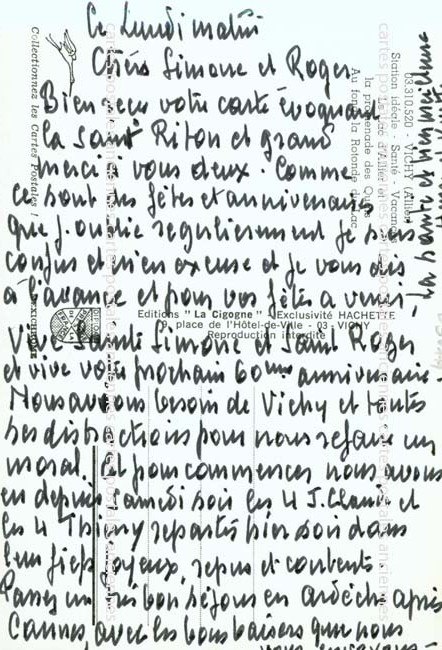 Ce Lundi matin
Chers Simone et Roger
Bien reçu votre carte évoquant
la Saint Riton et grand
merci à vous deux. Comme
ce sont des fêtes et anniversaires
que j'oublie regulierement je suis
confus et m'en excuse et je vous dis
à l'avance et pour vos fêtes à venir
Vive Sainte Simone et Saint Roger
et vive votre prochain 60ème anniversaire.
Nous avons besoin de Vichy et toutes
ses distractions pour nous refaire un
moral. Et pour commencer nous avons
eu depuis samedi soir les 4 J.Claude et
les 4 Thierry repartis hier soir dans
leur fief joyeux, repus et contents
Passez un très bon séjour en ardèche après
Cannes, avec les bons baisers que nous
vous envoyons
03.310.520 - VICHY (Allier)
Station idéale - Santé - Vacances
Le Lac d'Allier
la promenade des Quais
Au fond la Rotonde du Lac
Collectionnez les Cartes Postales !
Editions "La Cigogne" - Exclusivité HACHETTE
9, place de l'Hôtel-de-Ville - 03 - VICHY
Reproduction interdite
MEXICHROME
cartes postales anciennes